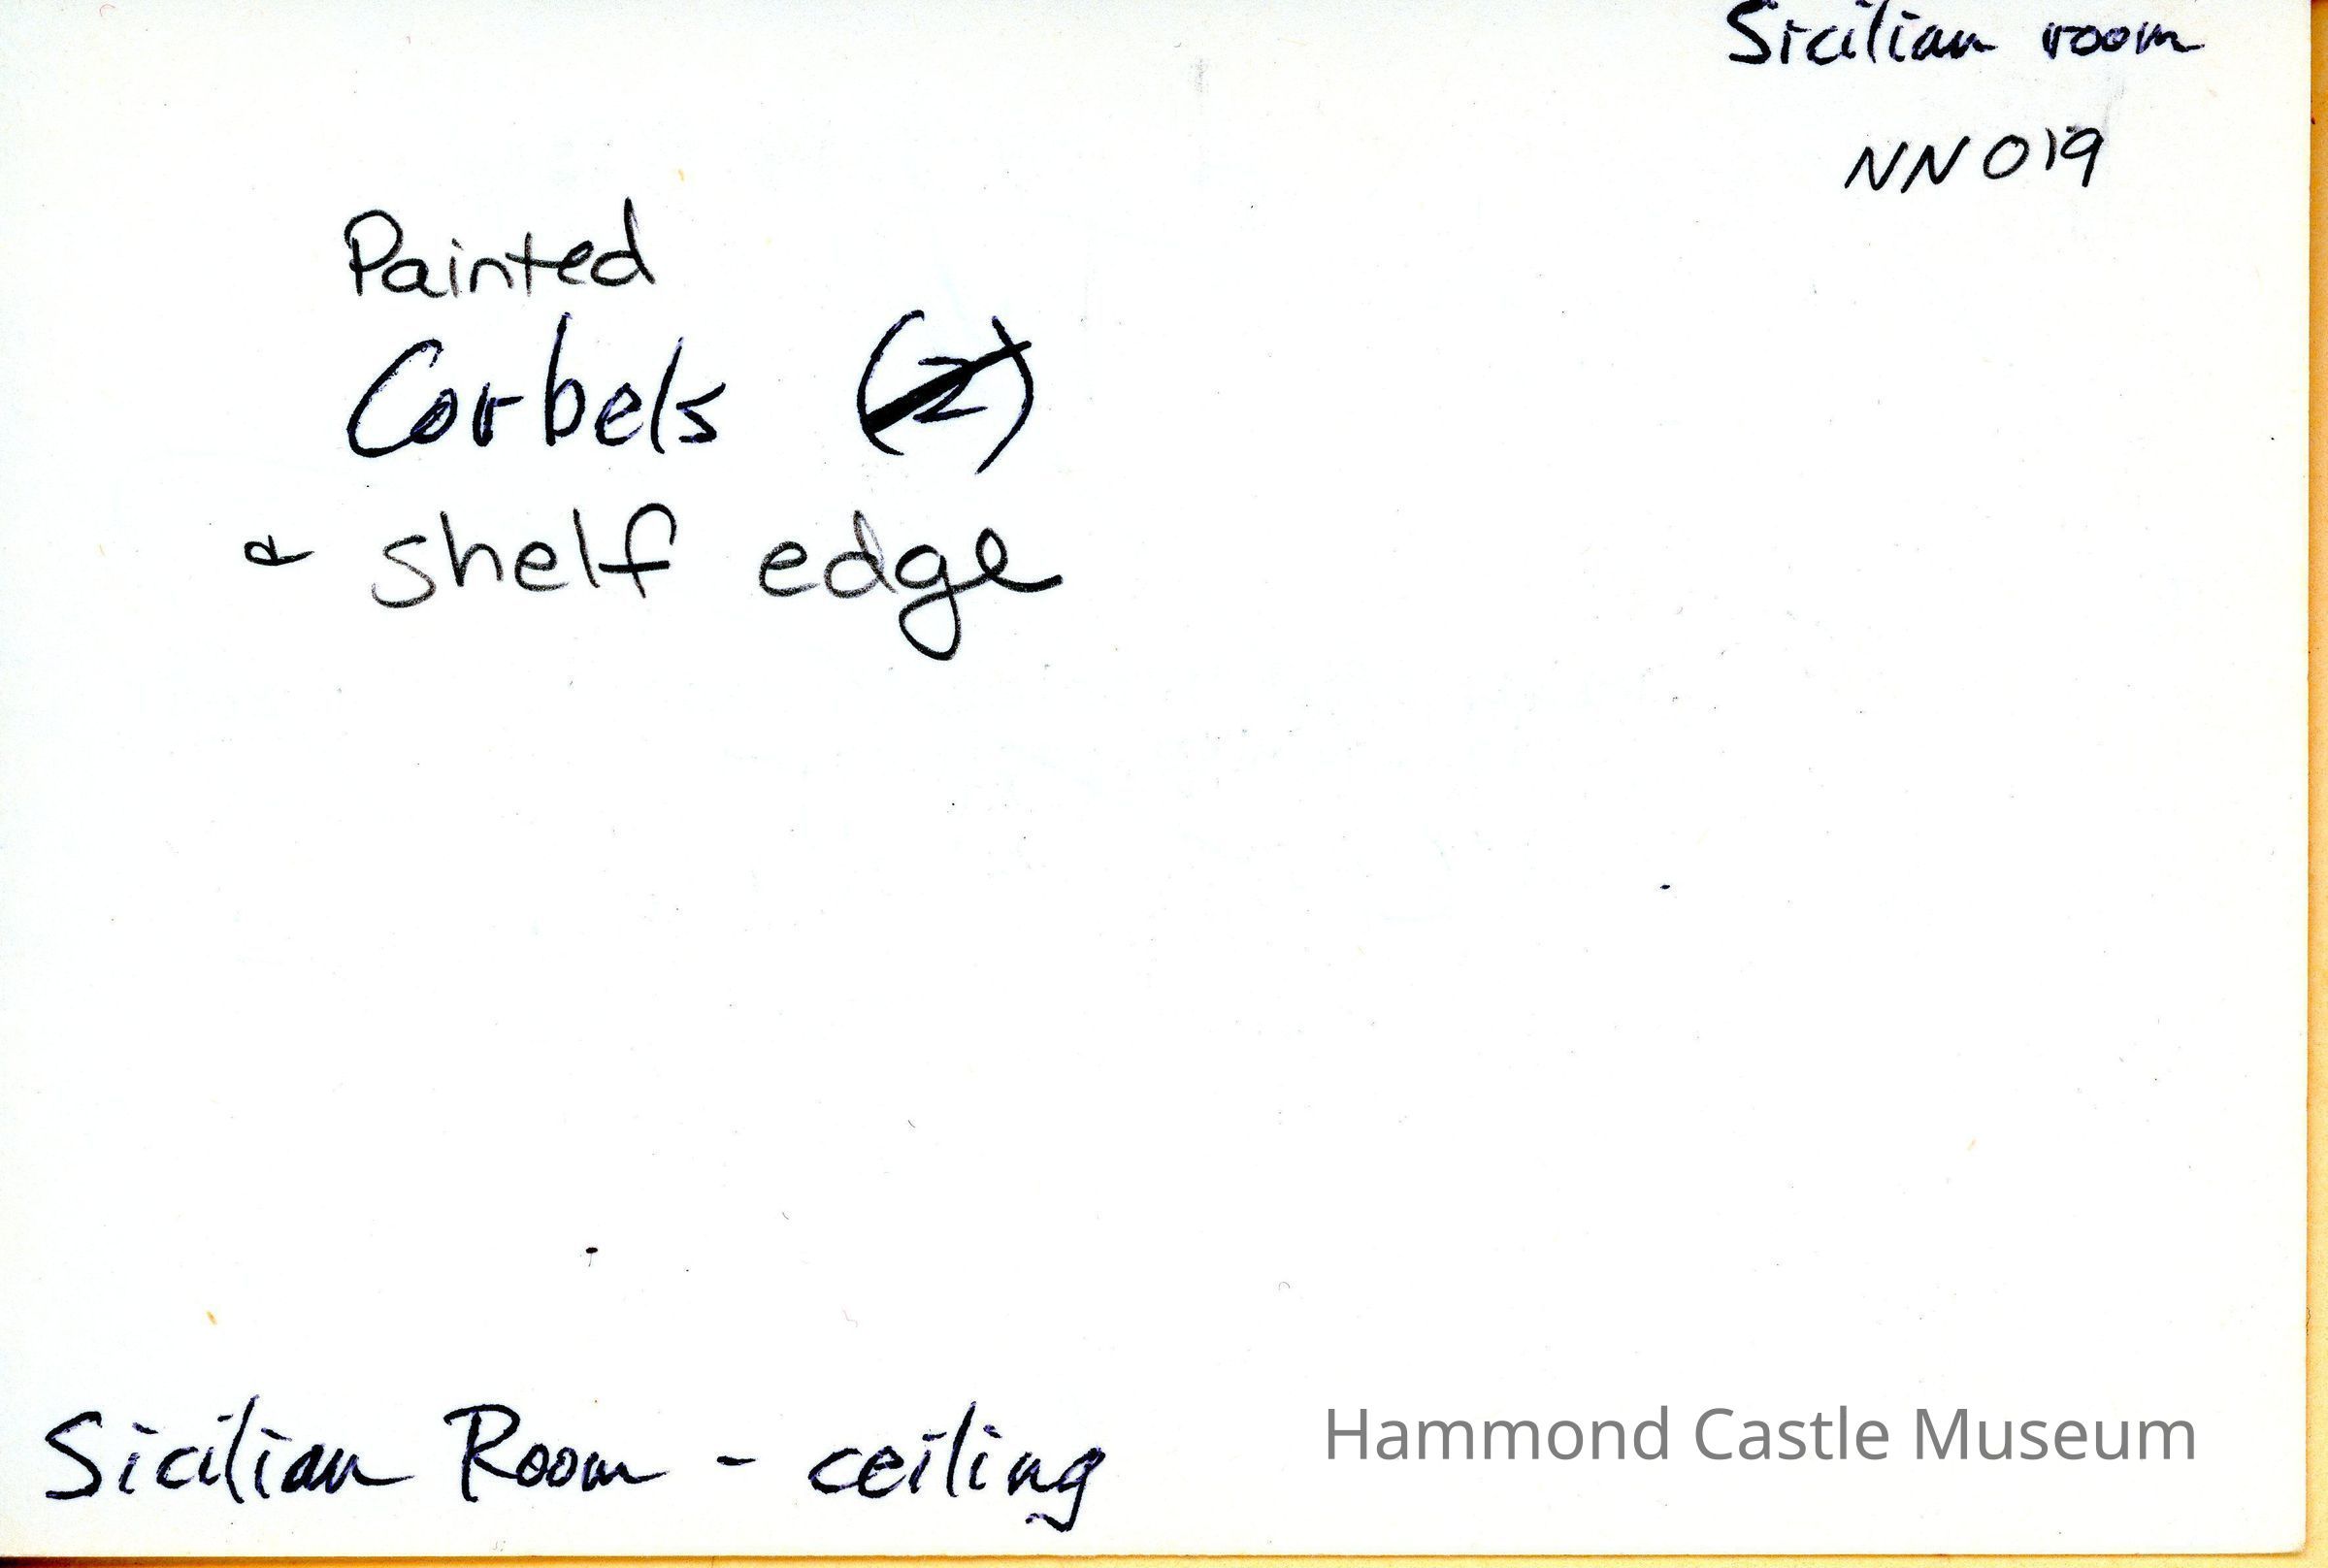 Sicilian room
NN019
Painted
Corbels (2)
& shelf edge
Sicilian Room - ceiling
Hammond Castle Museum